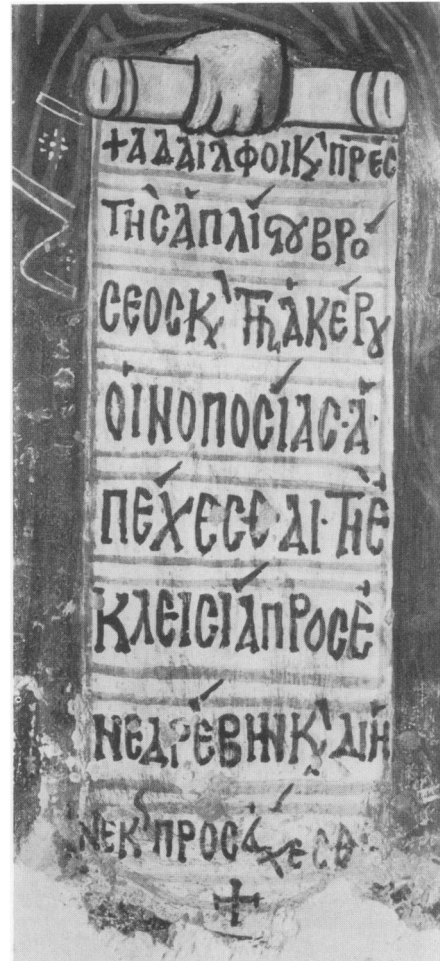 + ΑΔΔΙΑΦΟΙ Κ ΠΡΕΣ
ΤΗC ΑΠΛΙϹΤΟΥ ΒΡΟ
CΕΟC Κ ΤΗC ΑΚΕΡΟΥ
ΟΙΝΟΠΟCΙΑC · Α
ΠΕΧΕCΘΑΙ · ΤΗ Ε
ΚΛΕΙCΙΑ ΠΡΟCΕ
ΝΕΔΡΕΒΙΝ Κ ΔΙΗ
ΝΕΚ ΠΡΟCΑΧΕCΘ
+